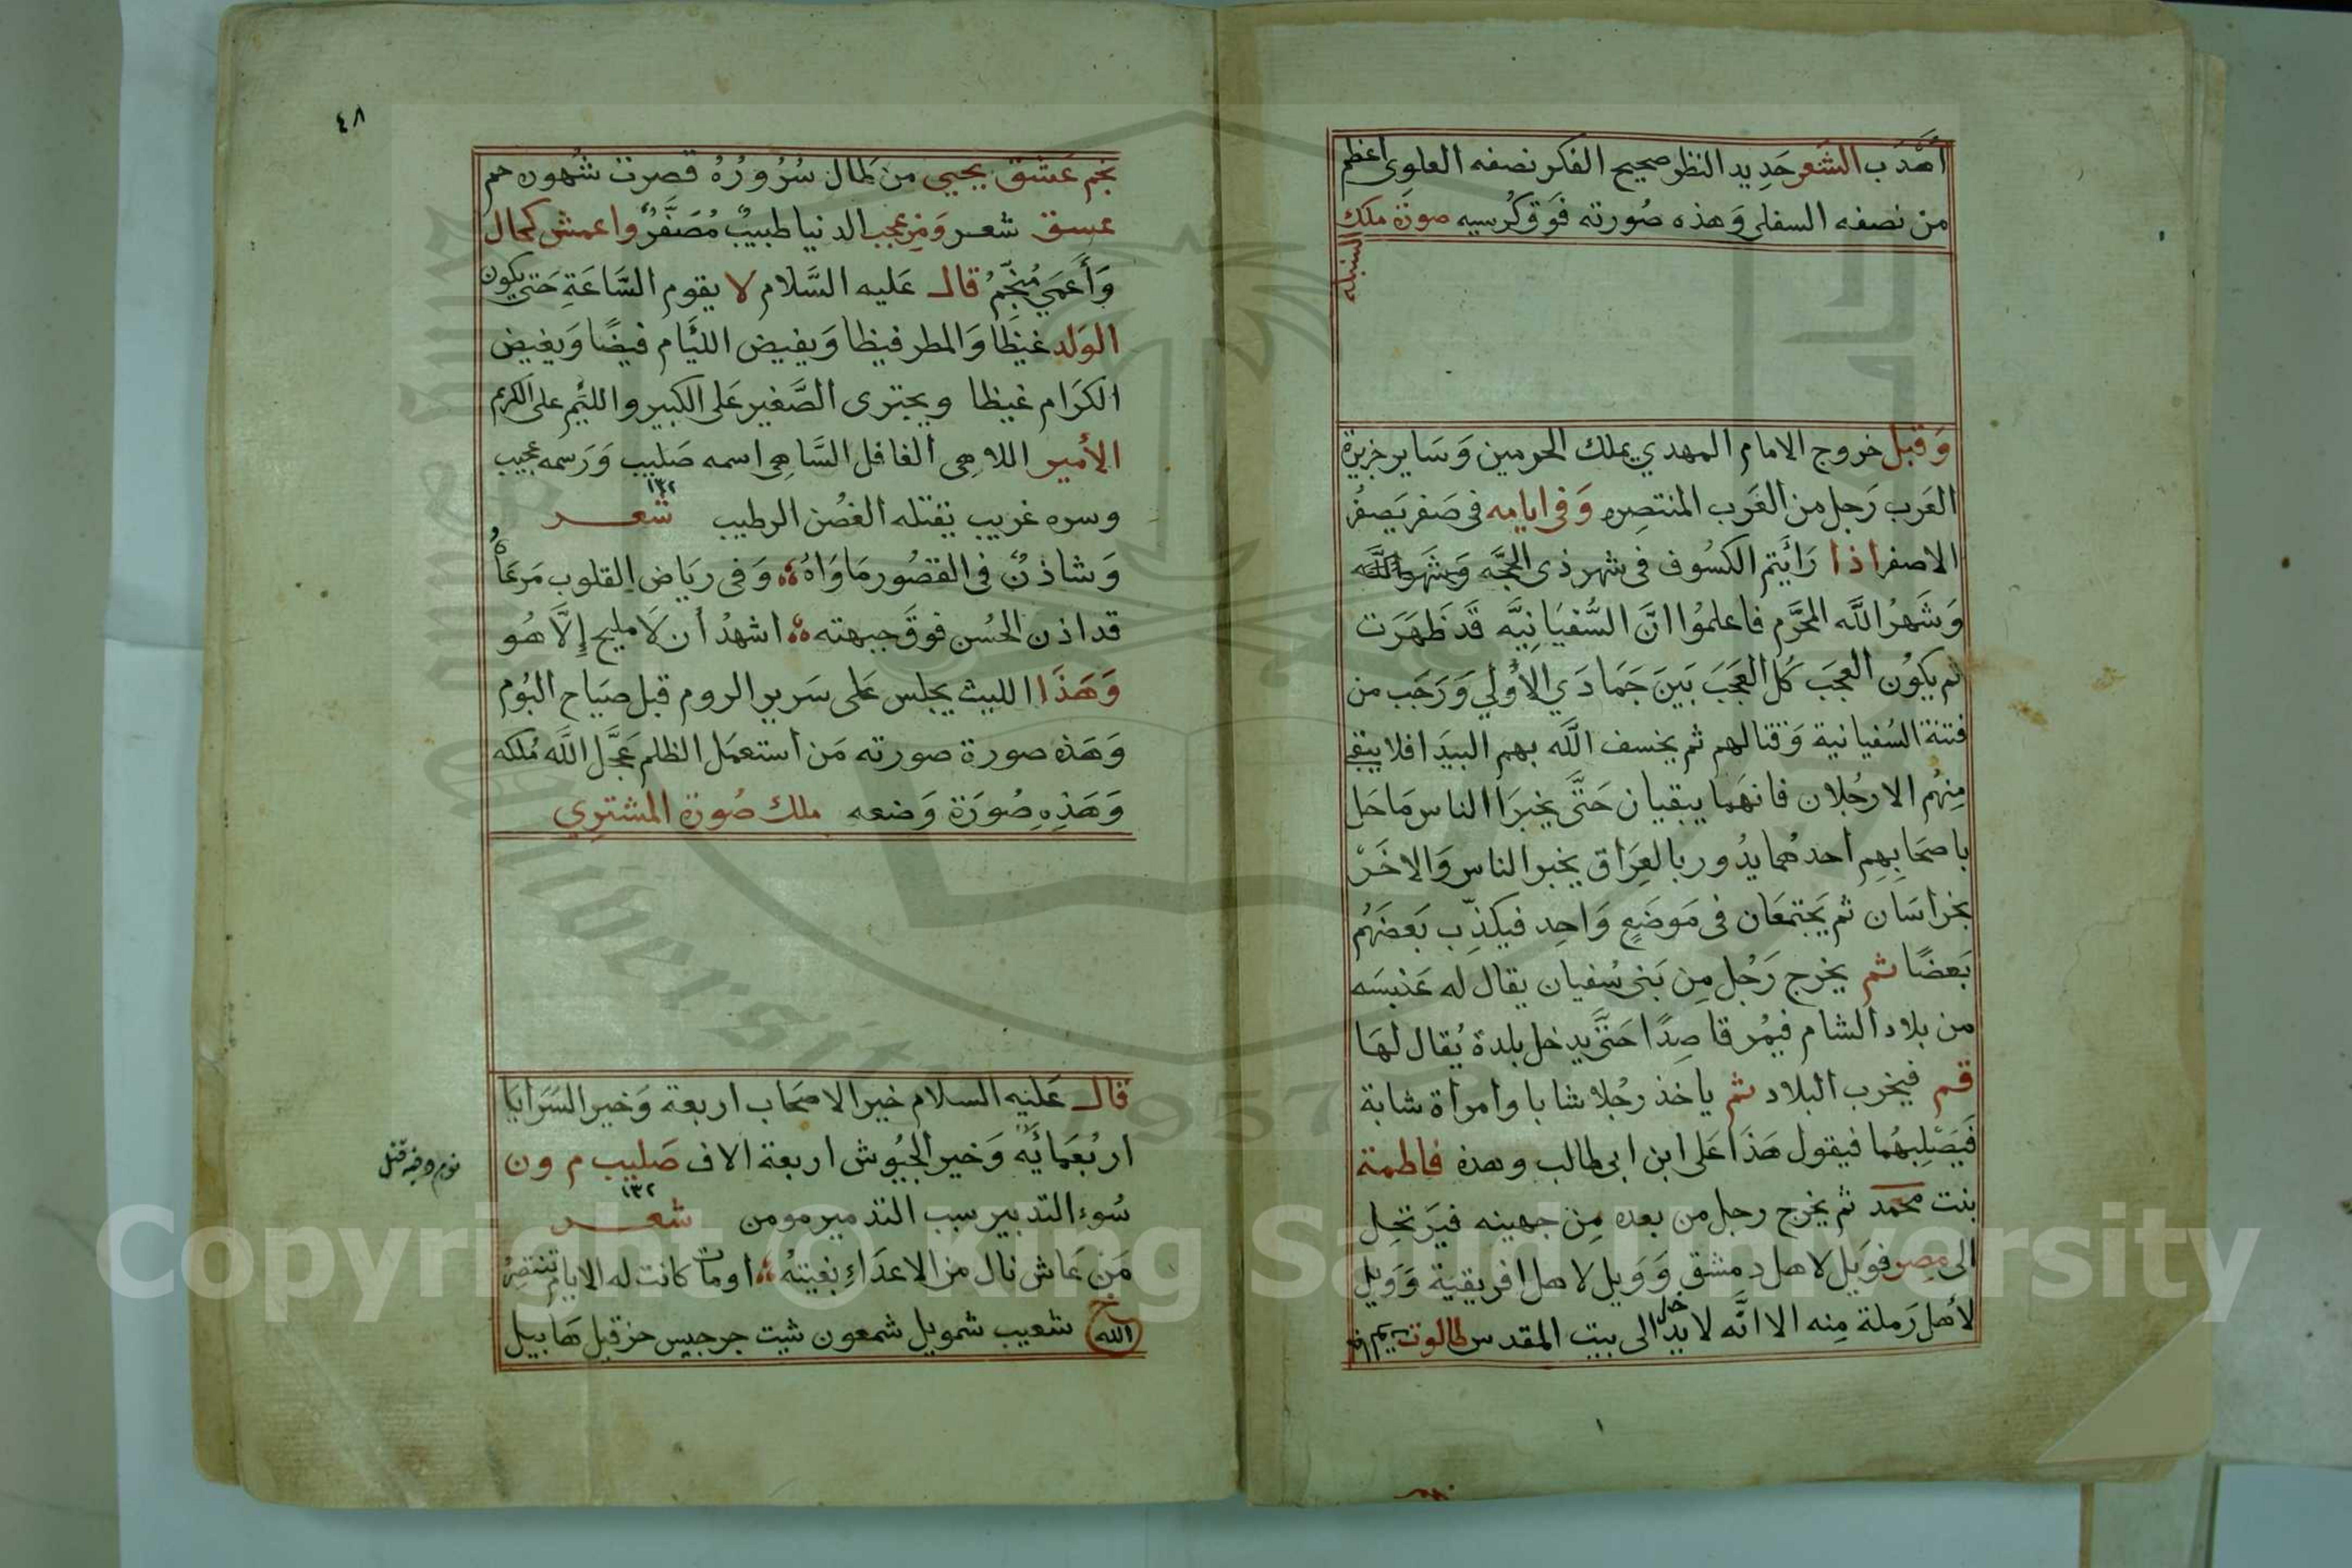 أَهْدَب الشَعر حَدِيد النظر صحيح الفكر نصفه العلوى اعظم
من نصفه السفلى وَهذه صُورته فَوق كُرسيه صورَة ملك
السنبله
وَقَبل خروج الامام المهدي يملك الحرمين وَسَاير جزيرة
العَرب رَجل من الغَرب المنتصره وَفى ايامه فى صَفر يَصفرُ
الاصفر اذا رَائَيتم الكسُوف فى شهر ذى الحجَّه وَشَهر اللَّه
وَشَهرُ اللَّه المحَرَّم فاعلمُوا انَّ السُّفيَانِيَّه قَد ظَهَرَت
ثم يكوُن العجَب كُل العَجَبَ بَينَ جَمَادَي الاُولي وَرَجَب من
فتنة السُفيانية وَقتالهم ثم يخسف اللَّه بهم البيَدا فلا يبقى
مِنهُم الا رجُلان فانهَما يبقيان حَتَّى يخبرَا الناس مَا حَل
باصحَابِهِم احدهما يدُور بالعِرَاق يخبر الناس وَالاخَر
بخراسَان ثم يَجتمعَان فى مَوضَعٍ وَاحِد فيكذّب بَعضَهُم
بَعضًا ثم يخرج رَجُل مِن بَنى سُفيان يقال له عَنبسَه
من بلاد الشام فيمُر قاصِدًا حَتَّى يدخل بلدة يُقال لهَا
قم فيخرب البلاد ثم ياخذ رجُلا شابا وامراة شابة
فَيَصْلِبهُما فيقول هَذَا عَلى ابن ابى طالب وهذه فاطمة
بنت محمد ثم يخرج رجل من بعده مِن جهينه فيَرتحِل
الى مِصر فوَيل لاهل دمشق وَوَيل لاهل افريقية وَوَيل
لأهل رَملة مِنه الا انَّه لا يدخل الى بيت المقدس طالوت
٤٨
نجم عَشق يحيي من لمال سُرُورُهُ قصرت شهوه حم
عسق شعر وَمِن عجب الدنيا طبيبٌ مُصَفَّرٌ واعمش كحال
وَأَعمَي مُنجّمُ قال عَليه السَّلام لا يقوم السَّاعَةِ حَتى يكون
الوَلد غيَظًا وَالمطر فيظا وَيفيض اللئَام فيضًا وَيغيض
الكَرَام غيظا ويجترى الصَّغير عَلى الكبير واللئيم على الكريم
الأمير اللاهى الغافل السَّاهِى اسمه صَليب وَرَسمه عجيب
١٣٢
وسره غريب يَقتله الغصُن الرطيب شعر
وَشاذنٌ فى القصُور مَاوَاهُ وَفى ريَاض القلوب مَرعَاهُ
قد اذن الحُسن فوقَ جبهته اشهدُ أن لَا مليح إِلَّا هُو
وَهَذَا الليث يجلس عَلى سَرير الروم قبل صيَاح البُوم
وَهَذه صورة صورته مَن استعمَل الظلم عَجَّل اللَّه مُلكه
وَهَذِهِ صُورَة وَضعه ملك صُورة المشتري
قال عَليه السلام خير الاصحَاب اربعة وَخير السَرَايَا
اربُعَمائَيَه وَخير الجيُوش اربعة الاف صَليب م ون
١٣٢
سُوء التدبير سبب التدمير مومن شعر
مَن عَاش نال من الاعدَاءِ بغيتهُ اومات كانت له الايام تنتصِرُ
خ الله شعيب شمويل شمعون شيت جرجيس حزقيل هَابيل
Copyright © King Saud University
1957